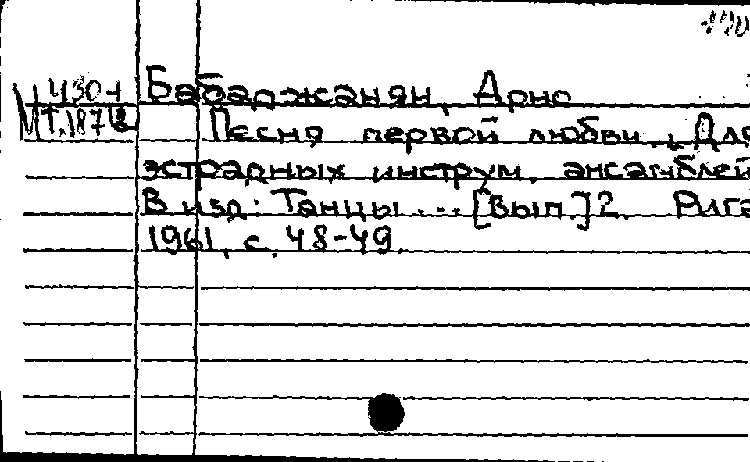 430-1
Бабаджанян, Арно
Песня первой любви. Для
эстрадных инструм. ансамблей
В изд: Танцы... [Вып.] 2. Рига
1961, с. 48-49.